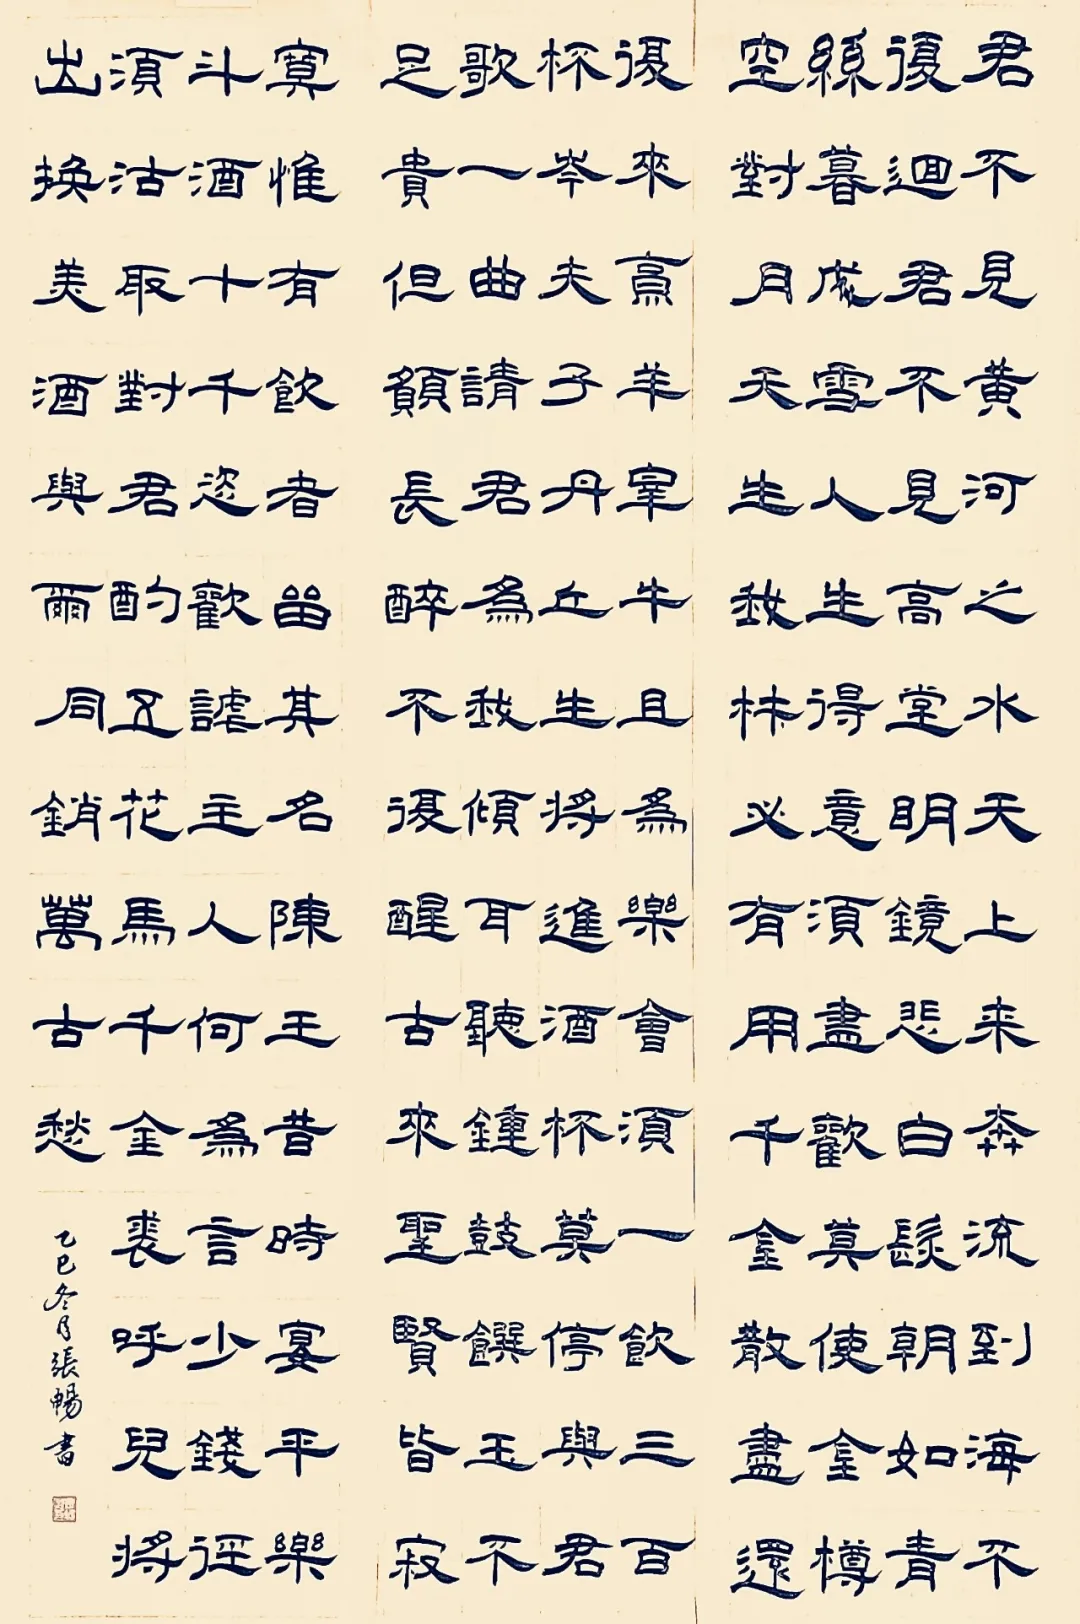 君不見黃河之水天上来奔流到海不
復迴君不見高堂明鏡悲白髮朝如青
絲暮成雪人生得意須盡歡莫使金樽
空對月天生我材必有用千金散盡還
復來烹羊宰牛且為樂會須一飲三百
杯岑夫子丹丘生將進酒杯莫停與君
歌一曲請君為我傾耳聽鍾鼓饌玉不
足貴但願長醉不復醒古來聖賢皆寂
寞惟有飲者留其名陳王昔時宴平樂
斗酒十千恣歡謔主人何為言少錢徑
須沽取對君酌五花馬千金裘呼兒將
出換美酒與爾同銷萬古愁
乙巳冬月張暢書